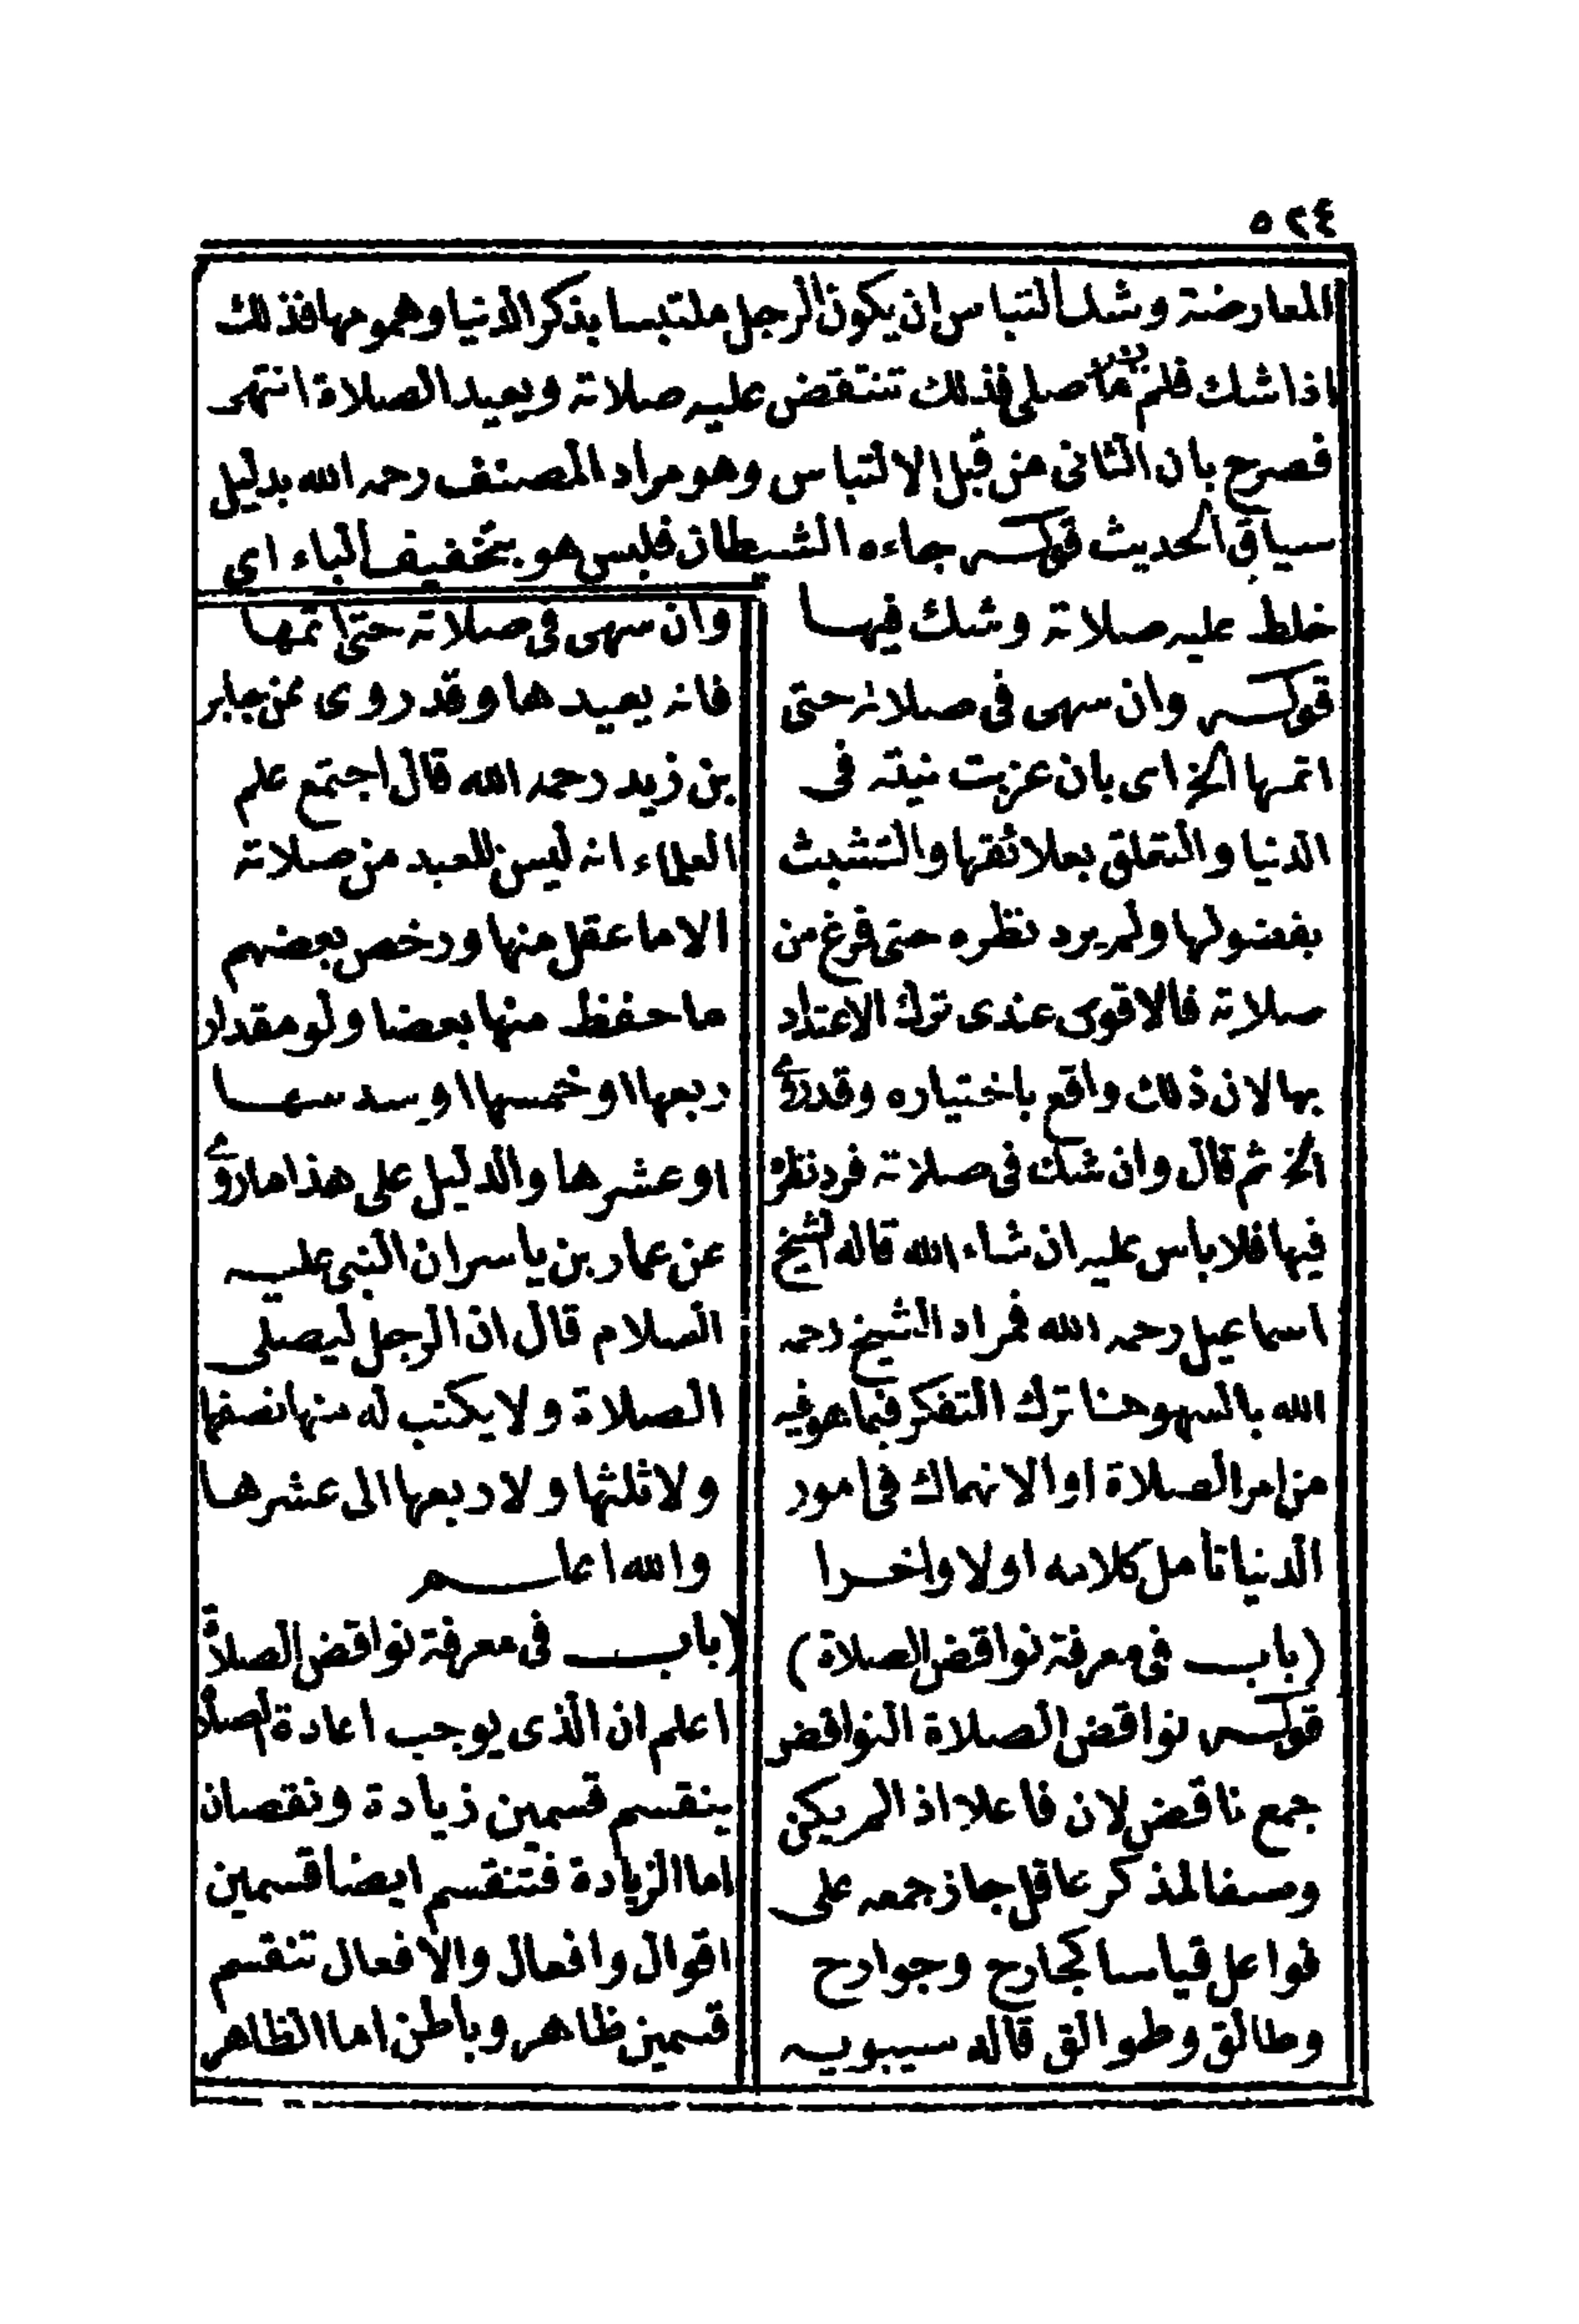 ٥٢٤
المعارضة وشك التباس ان يكون الرجل ملتبسا بذكر الدنيا وهمومها فذلك
اذا شك فلم يدر ما صلى فذلك تنتقض عليه صلاته ويعيد الصلاة انتهى
فصرح بان الثانى من قبل الالتباس وهو مراد المصنف رحمه الله بدليل
سياق الحديث قوله جاءه الشيطان فلبس هو بتخفيف الباء اى
خلط عليه صلاته وشك فيها
قوله وان سهى فى صلاته حتى
اتمها الخ اى بان عزبت نيته فى
الدنيا والتعلق بعلائقها والتشبث
بفضولها ولم يرد نظره حتى فرغ من
صلاته فالاقوى عندى ترك الاعتداد
بها لان ذلك واقع باختياره وقد روى
الخ ثم قال وان شك فى صلاته فرد نظره
فيها فلا باس عليه ان شاء الله قاله الشيخ
اسماعيل رحمه الله فمراد الشيخ رحمه
الله بالسهو هنا ترك التفكر فيما هو فيه
من امر الصلاة او الانهماك فى امور
الدنيا تامل كلامه اولا واخرا
(باب فى معرفة نواقض الصلاة)
قوله نواقض الصلاة النواقض
جمع ناقض لان فاعلا اذا لم يكن
وصفا لمذكر عاقل جاز جمعه على
فواعل قياسا كجارح وجوارح
وطالق وطوالق قاله سيبويه
وان سهى فى صلاته حتى اتمها
فانه يعيدها وقد روى عن جابر
بن زيد رحمه الله قال اجتمع علم
العلماء انه ليس للعبد من صلاته
الا ما عقل منها ورخص بعضهم
ما حفظ منها بعضا ولو مقدار
ربعها او خمسها او سدسها
او عشرها والدليل على هذا ما روى
عن عمار بن ياسر ان النبى عليه
السلام قال ان الرجل ليصلى
الصلاة ولا يكتب له منها نصفها
ولا ثلثها ولا ربعها الى عشرها
والله اعلم
(باب فى معرفة نواقض الصلاة
اعلم ان الذى يوجب اعادة الصلاة
ينقسم قسمين زيادة ونقصان
اما الزيادة فتنقسم ايضا قسمين
اقوال وافعال والافعال تنقسم
قسمين ظاهر وباطن اما الظاهر